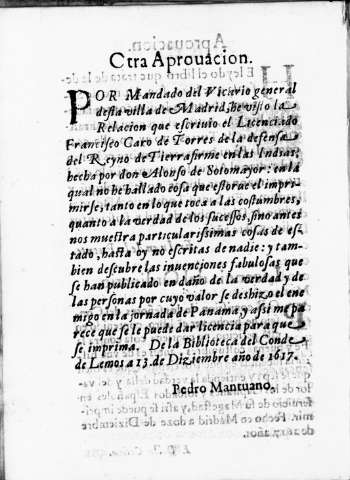 Otra Aprouacion.
POR Mandado del Vicario general
desta villa de Madrid, he visto la
Relacion que escriuio el Licenciado
Francisco Caro de Torres de la defensa
del Reyno de Tierra firme en las Indias;
hecha por don Alonso de Sotomayor: en la
qual no he hallado cosa que estorue el impri-
mirse, tanto en lo que toca a las costumbres,
quanto a la verdad de los sucessos, sino antes
nos muestra particularissimas cosas de es-
tado, hasta oy no escritas de nadie: y tam-
bien descubre las inuenciones fabulosas que
se han publicado en daño de la verdad y de
las personas por cuyo valor se deshizo el ene
migo en la jornada de Panama, y assi me pa
rece que se le puede dar licencia para que
se imprima. De la Biblioteca del Conde
de Lemos a 13. de Diziembre año de 1617.
Pedro Mantuano.